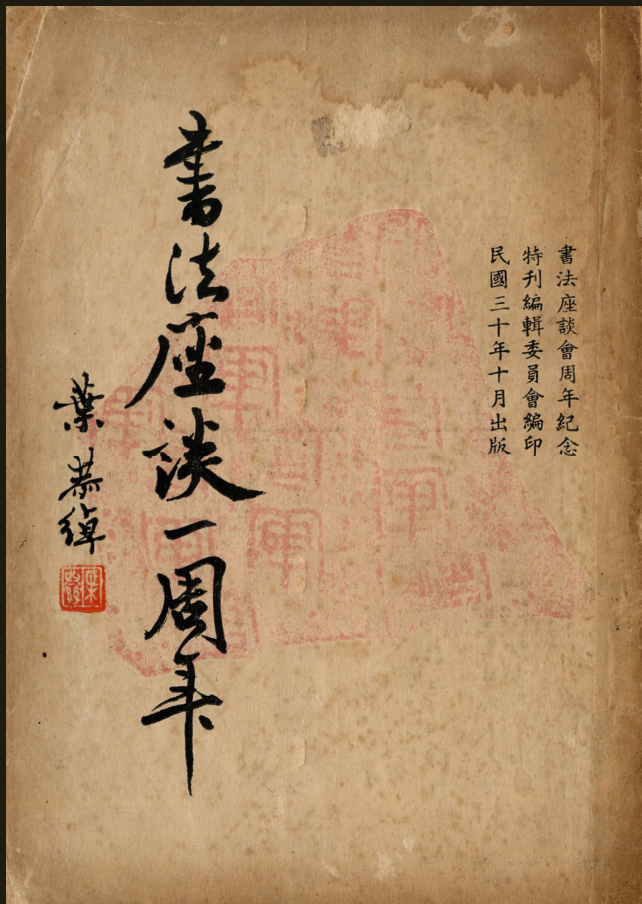 書法座談會周年紀念
特刊編輯委員會編印
民國三十年十月出版
書法座談一周年
葉恭綽